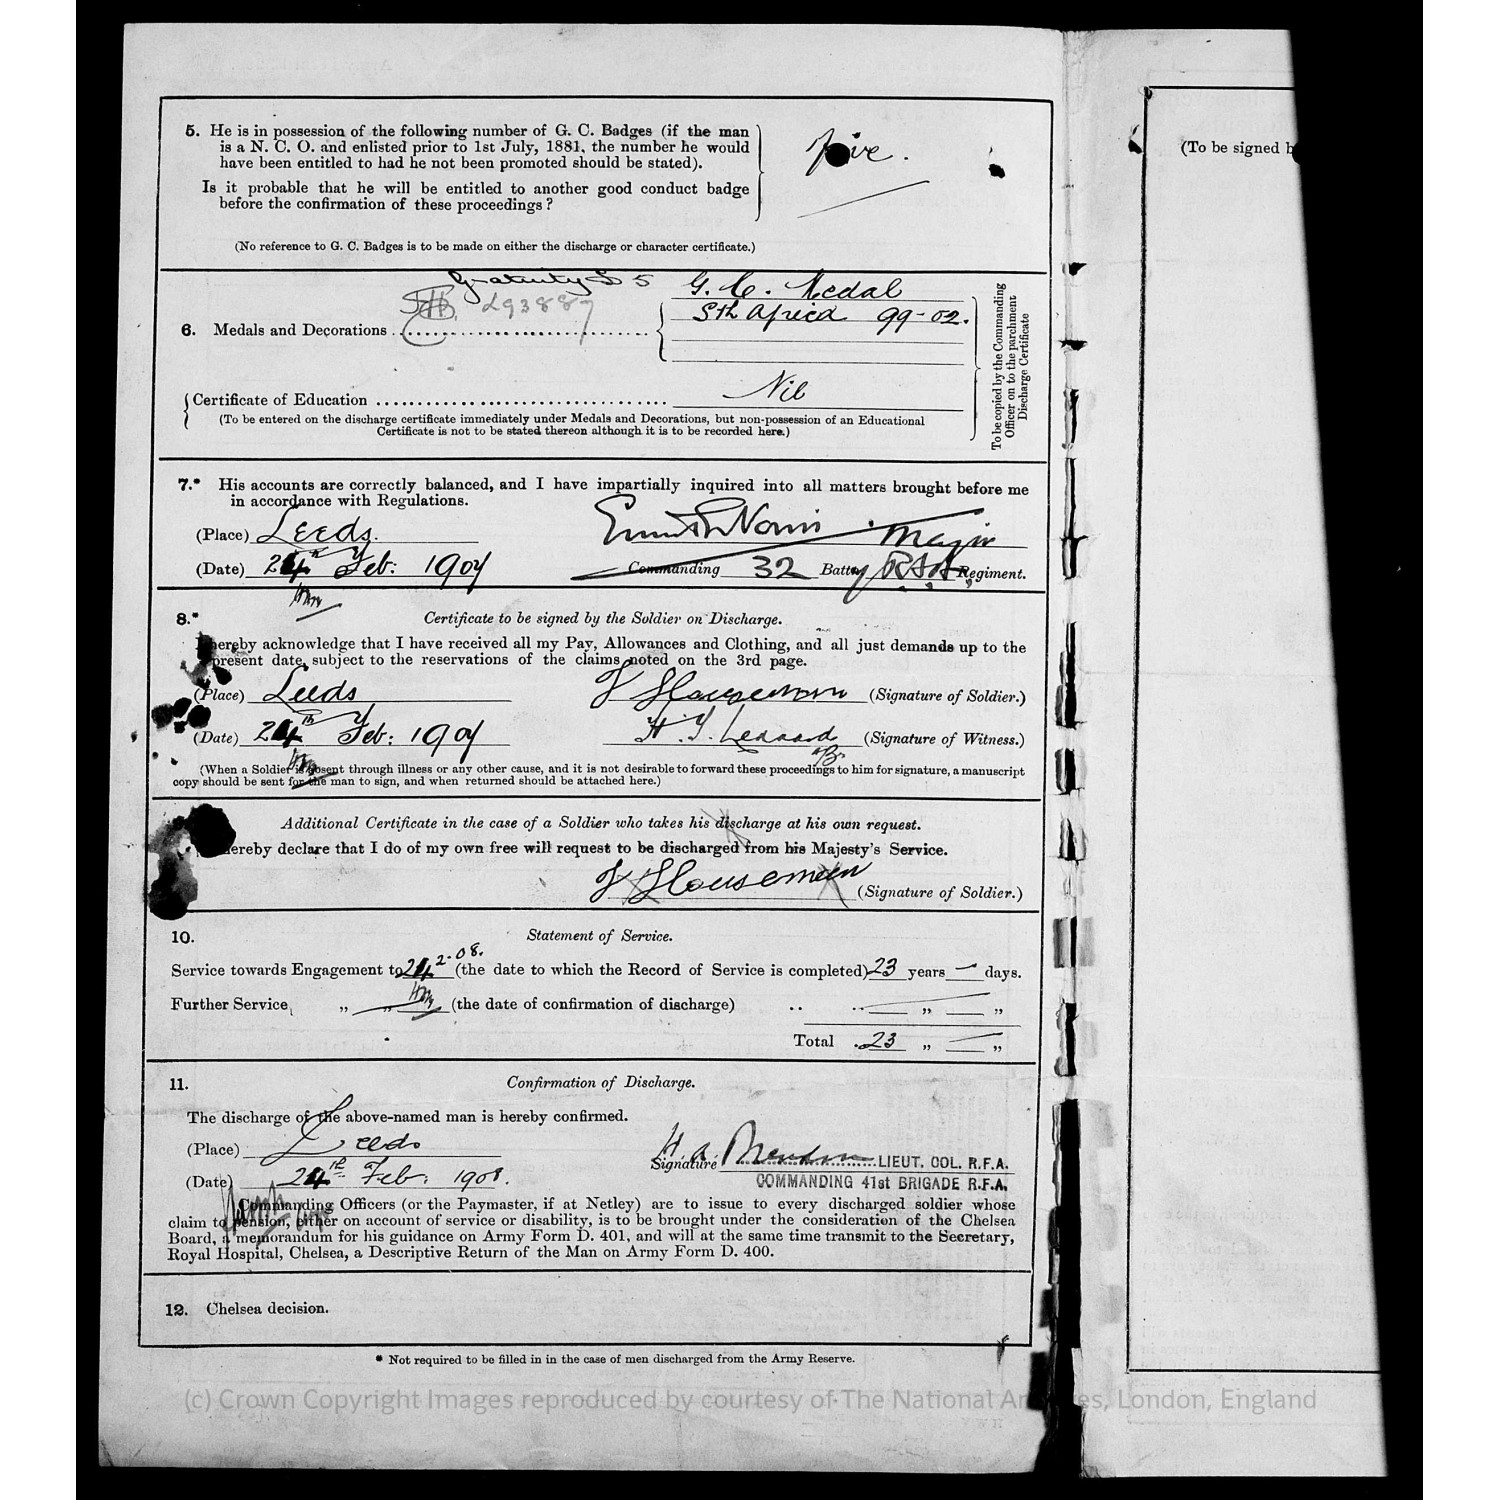 5. He is in possession of the following number of G. C. Badges (if the man
is a N. C. O. and enlisted prior to 1st July, 1881, the number he would
have been entitled to had he not been promoted should be stated).
Five.
Is it probable that he will be entitled to another good conduct badge
before the confirmation of these proceedings?
(No reference to G. C. Badges is to be made on either the discharge or character certificate.)
(To be signed b
Gratuity £ 5
G. C. Medal
£93887
Sth Africa 99-02.
6. Medals and Decorations
Certificate of Education
Nil
(To be entered on the discharge certificate immediately under Medals and Decorations, but non-possession of an Educational
Certificate is not to be stated thereon although it is to be recorded here.)
To be copied by the Commanding
Officer on to the parchment
Discharge Certificate
7.* His accounts are correctly balanced, and I have impartially inquired into all matters brought before me
in accordance with Regulations.
(Place) Leeds.
Major
(Date) 24th Feb: 1908
Commanding 32 Batty R.F.A. Regiment.
8.* Certificate to be signed by the Soldier on Discharge.
I hereby acknowledge that I have received all my Pay, Allowances and Clothing, and all just demands up to the
present date, subject to the reservations of the claims noted on the 3rd page.
(Place) Leeds
F Houseman (Signature of Soldier.)
(Date) 24th Feb: 1908
H. J. Leonard (Signature of Witness.)
(When a Soldier is absent through illness or any other cause, and it is not desirable to forward these proceedings to him for signature, a manuscript
copy should be sent for the man to sign, and when returned should be attached here.)
Additional Certificate in the case of a Soldier who takes his discharge at his own request.
hereby declare that I do of my own free will request to be discharged from his Majesty's Service.
F Houseman (Signature of Soldier.)
10. Statement of Service.
Service towards Engagement to 24.2.08. (the date to which the Record of Service is completed) 23 years — days.
Further Service, „ „ (the date of confirmation of discharge) .. .. — „ — „
Total 23 „ — „
11. Confirmation of Discharge.
The discharge of the above-named man is hereby confirmed.
(Place) Leeds
Signature LIEUT. COL. R.F.A.
(Date) 24th Feb: 1908.
COMMANDING 41st BRIGADE R.F.A.
Commanding Officers (or the Paymaster, if at Netley) are to issue to every discharged soldier whose
claim to pension, either on account of service or disability, is to be brought under the consideration of the Chelsea
Board, a memorandum for his guidance on Army Form D. 401, and will at the same time transmit to the Secretary,
Royal Hospital, Chelsea, a Descriptive Return of the Man on Army Form D. 400.
12. Chelsea decision.
* Not required to be filled in in the case of men discharged from the Army Reserve.
(c) Crown Copyright Images reproduced by courtesy of The National Archives, London, England